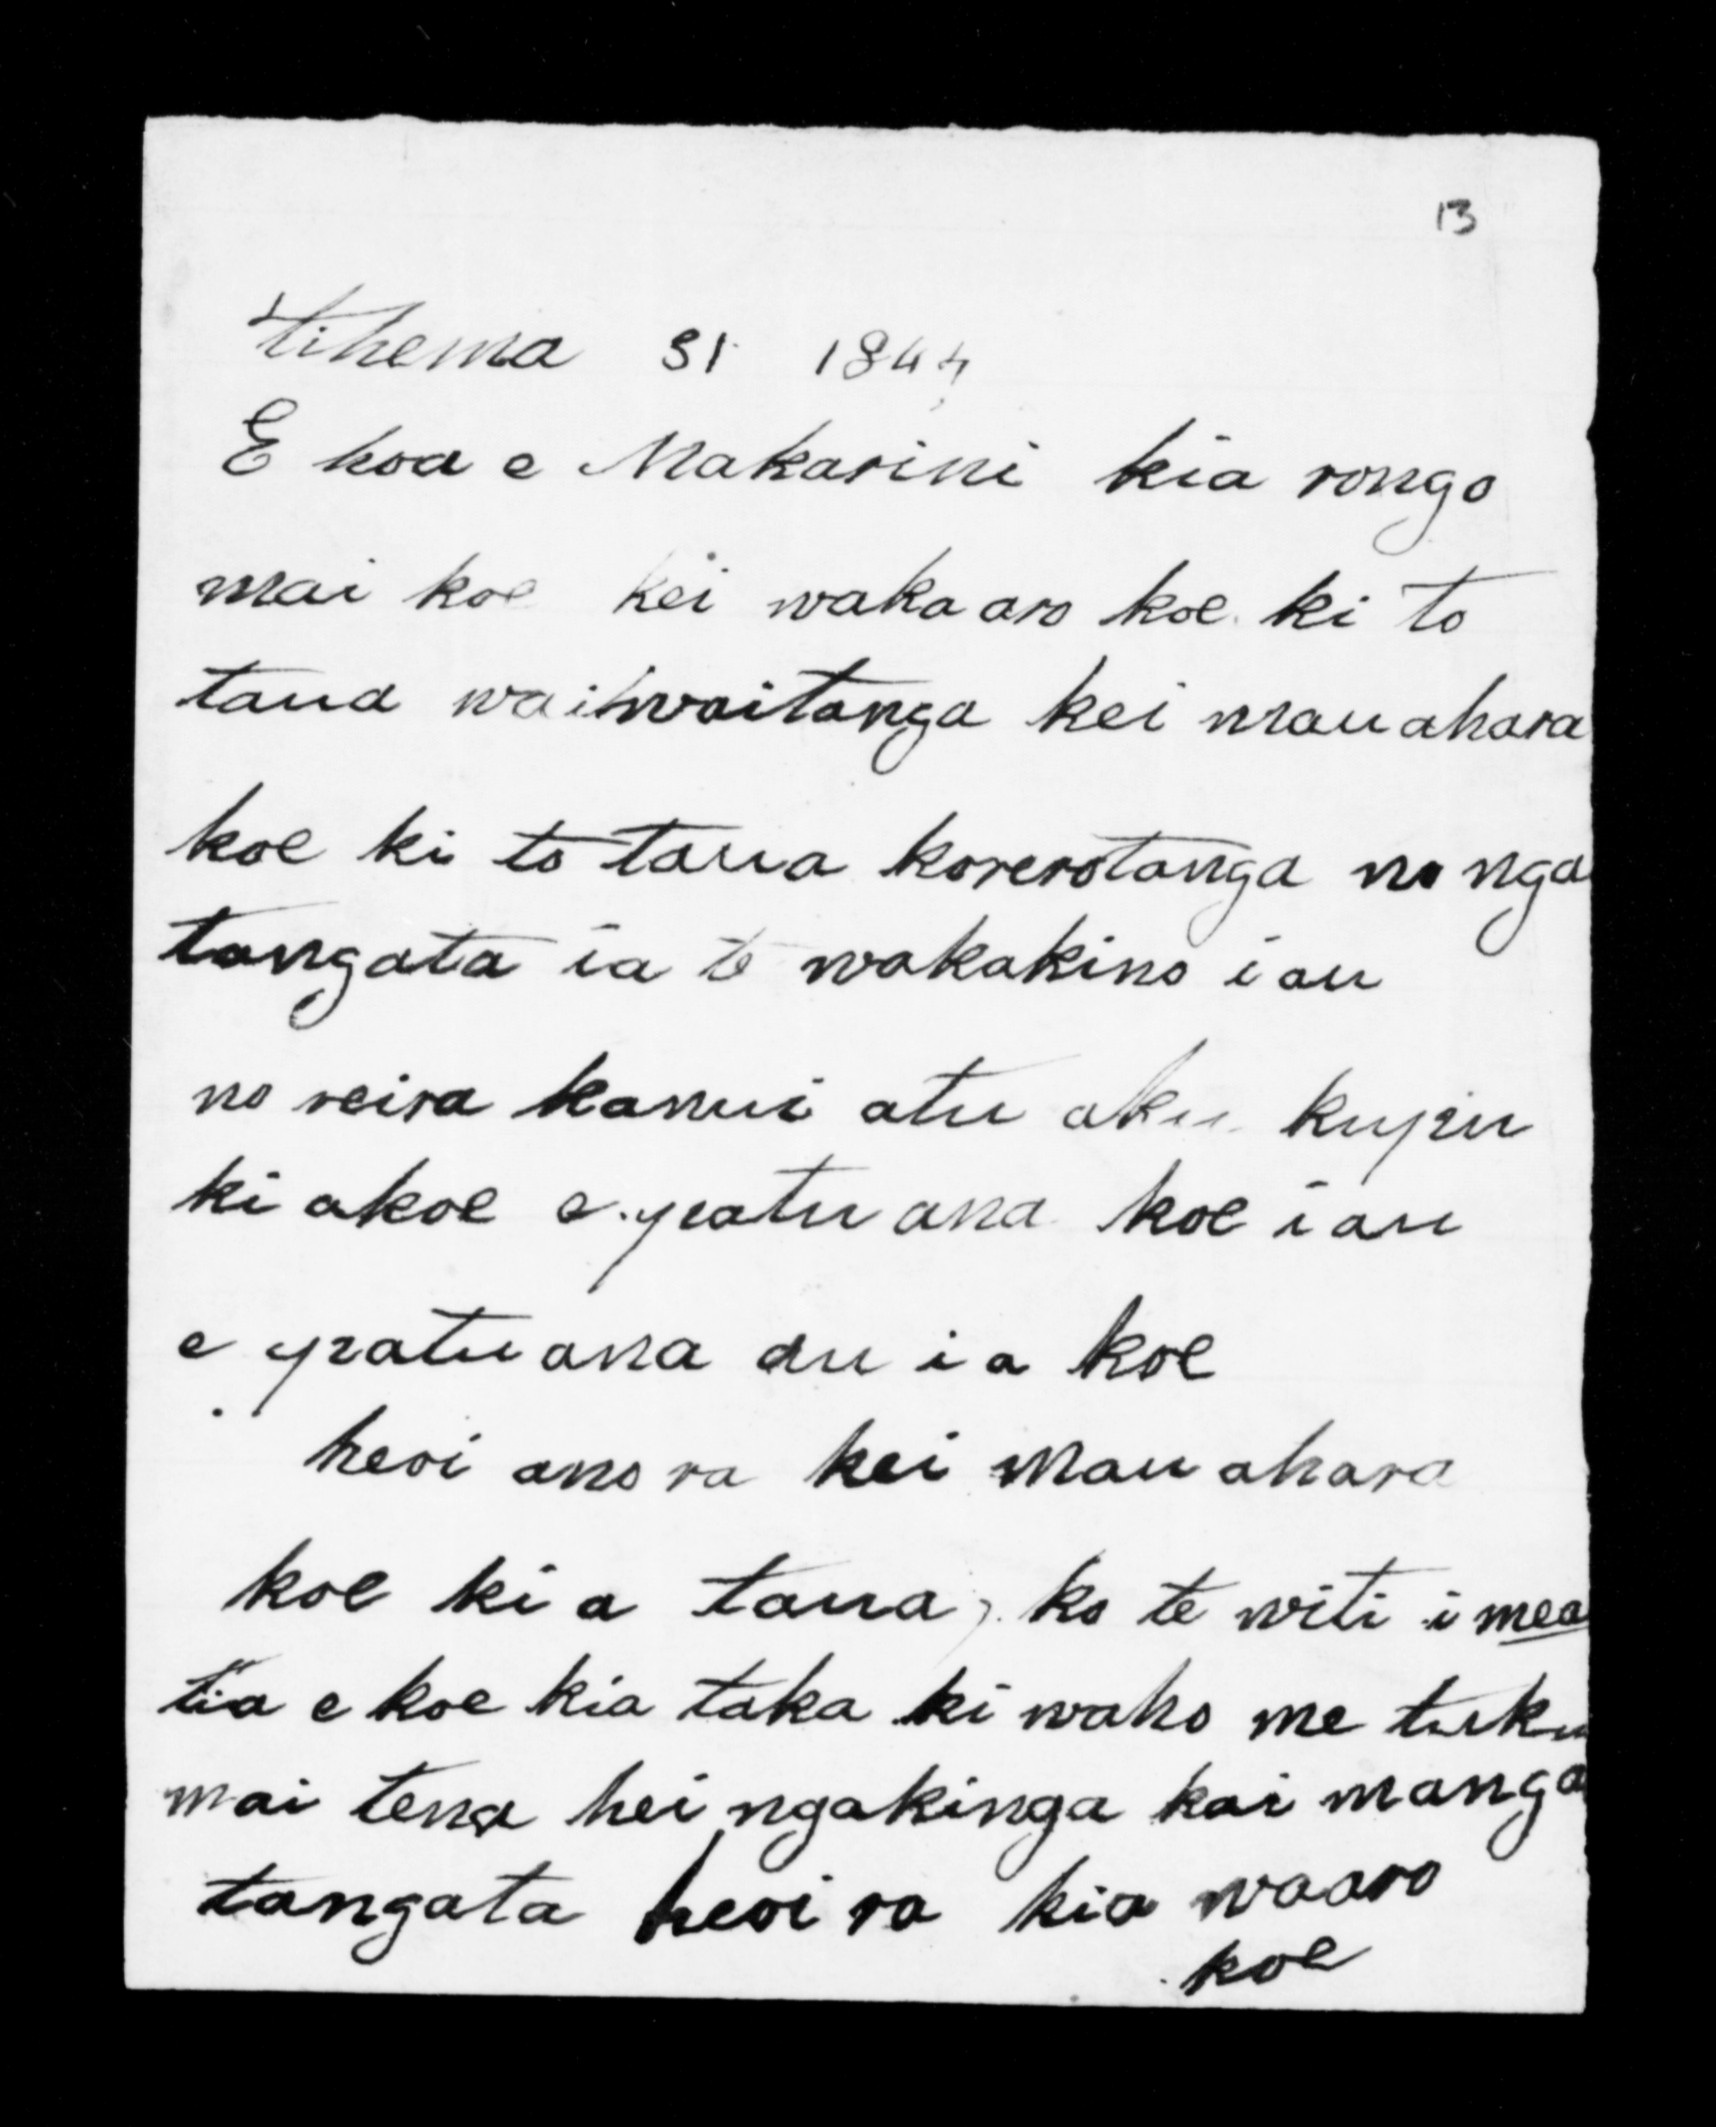 13
tihema 31 1844
E hoa e Makarini kia rongo
mai koe kei wakaaro koe ki to
taua waiwaitanga kei mauahara
koe ki to taua korerotanga no nga
tangata ia te wakakino i au
no reira kanui atu aku kupu
ki akoe e patu ana koe i au
e patu ana au i a koe
heoi ano ra kei mau ahara
koe ki a taua, ko te witi i mea
tia e koe kia taka ki waho me tuku
mai tena hei ngakinga kai manga
tangata heoi ra kia waaro
koe